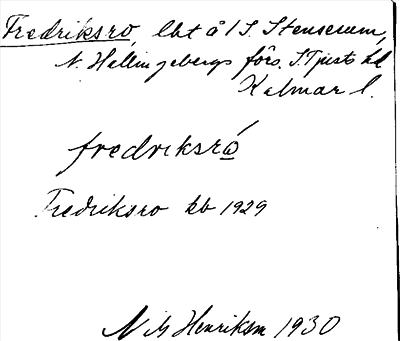 Fredriksro, lht å 1 S. Stenserum,
N. Hallingebergs förs. S. Tjusts hd
Kalmar l.
fredriksró
Fredriksro kb 1929
Nils Henrikson 1930